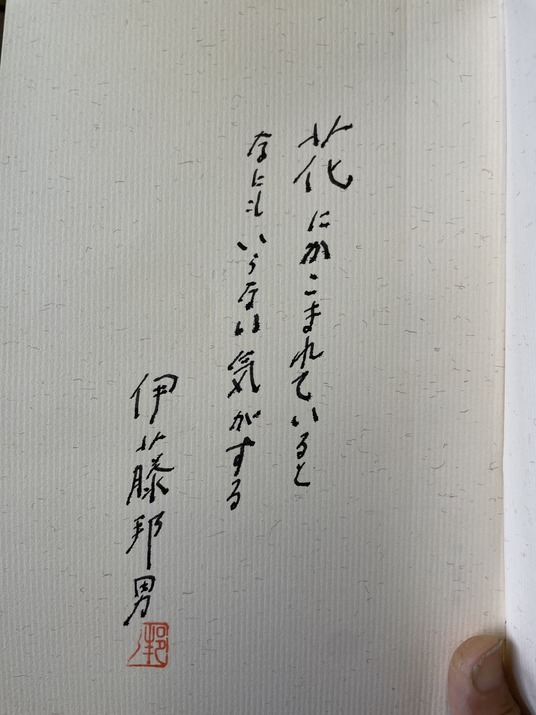 花にかこまれていると
なにもいらない気がする
伊藤邦男